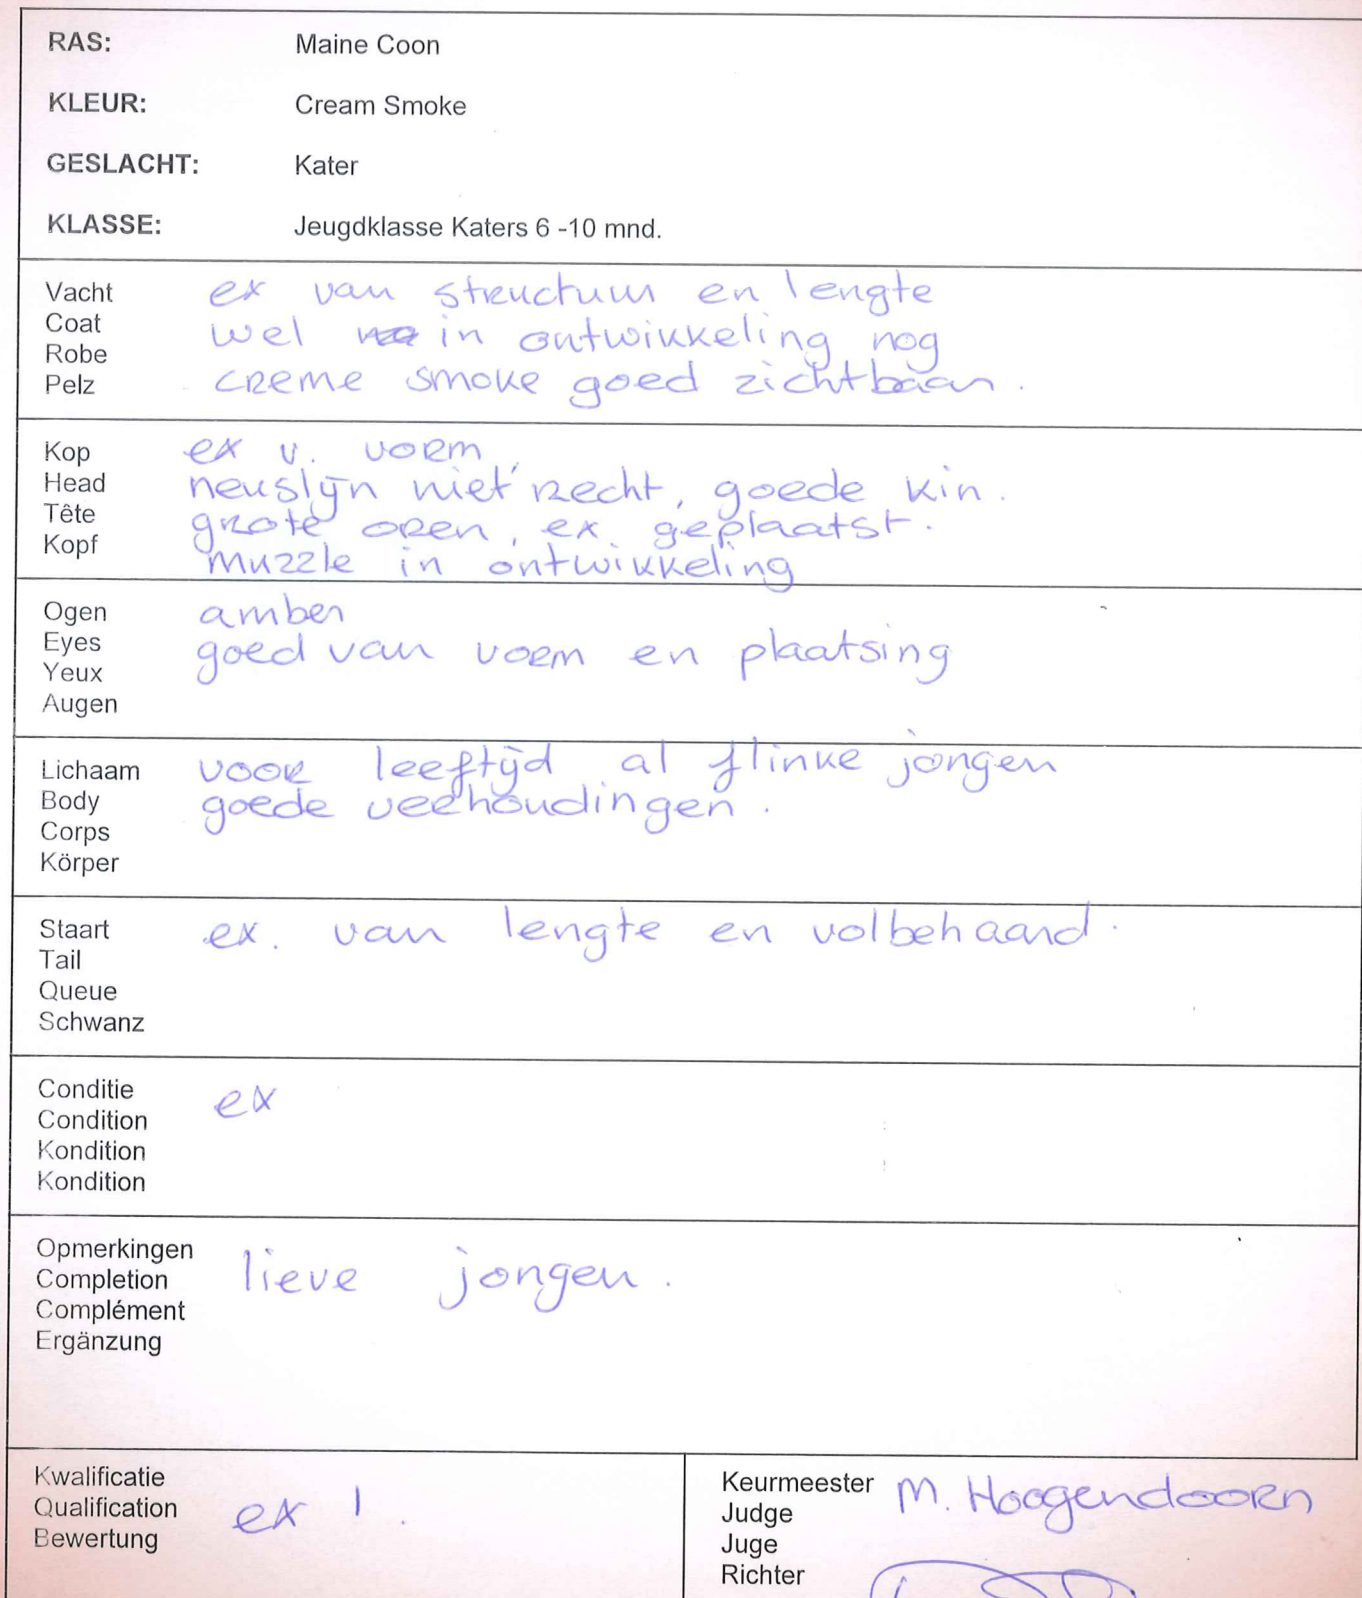 RAS: Maine Coon
KLEUR: Cream Smoke
GESLACHT: Kater
KLASSE: Jeugdklasse Katers 6 -10 mnd.
Vacht
Coat
Robe
Pelz
ex van structuur en lengte
wel in ontwikkeling nog
creme smoke goed zichtbaar.
Kop
Head
Tête
Kopf
ex v. vorm,
neuslijn niet recht, goede kin.
grote oren, ex. geplaatst.
muzzle in ontwikkeling
Ogen
Eyes
Yeux
Augen
amber
goed van vorm en plaatsing
Lichaam
Body
Corps
Körper
voor leeftijd al flinke jongen
goede verhoudingen.
Staart
Tail
Queue
Schwanz
ex. van lengte en volbehaard.
Conditie
Condition
Kondition
Kondition
ex
Opmerkingen
Completion
Complément
Ergänzung
lieve jongen.
Kwalificatie
Qualification
Bewertung
ex 1.
Keurmeester
Judge
Juge
Richter
M. Hoogendoorn